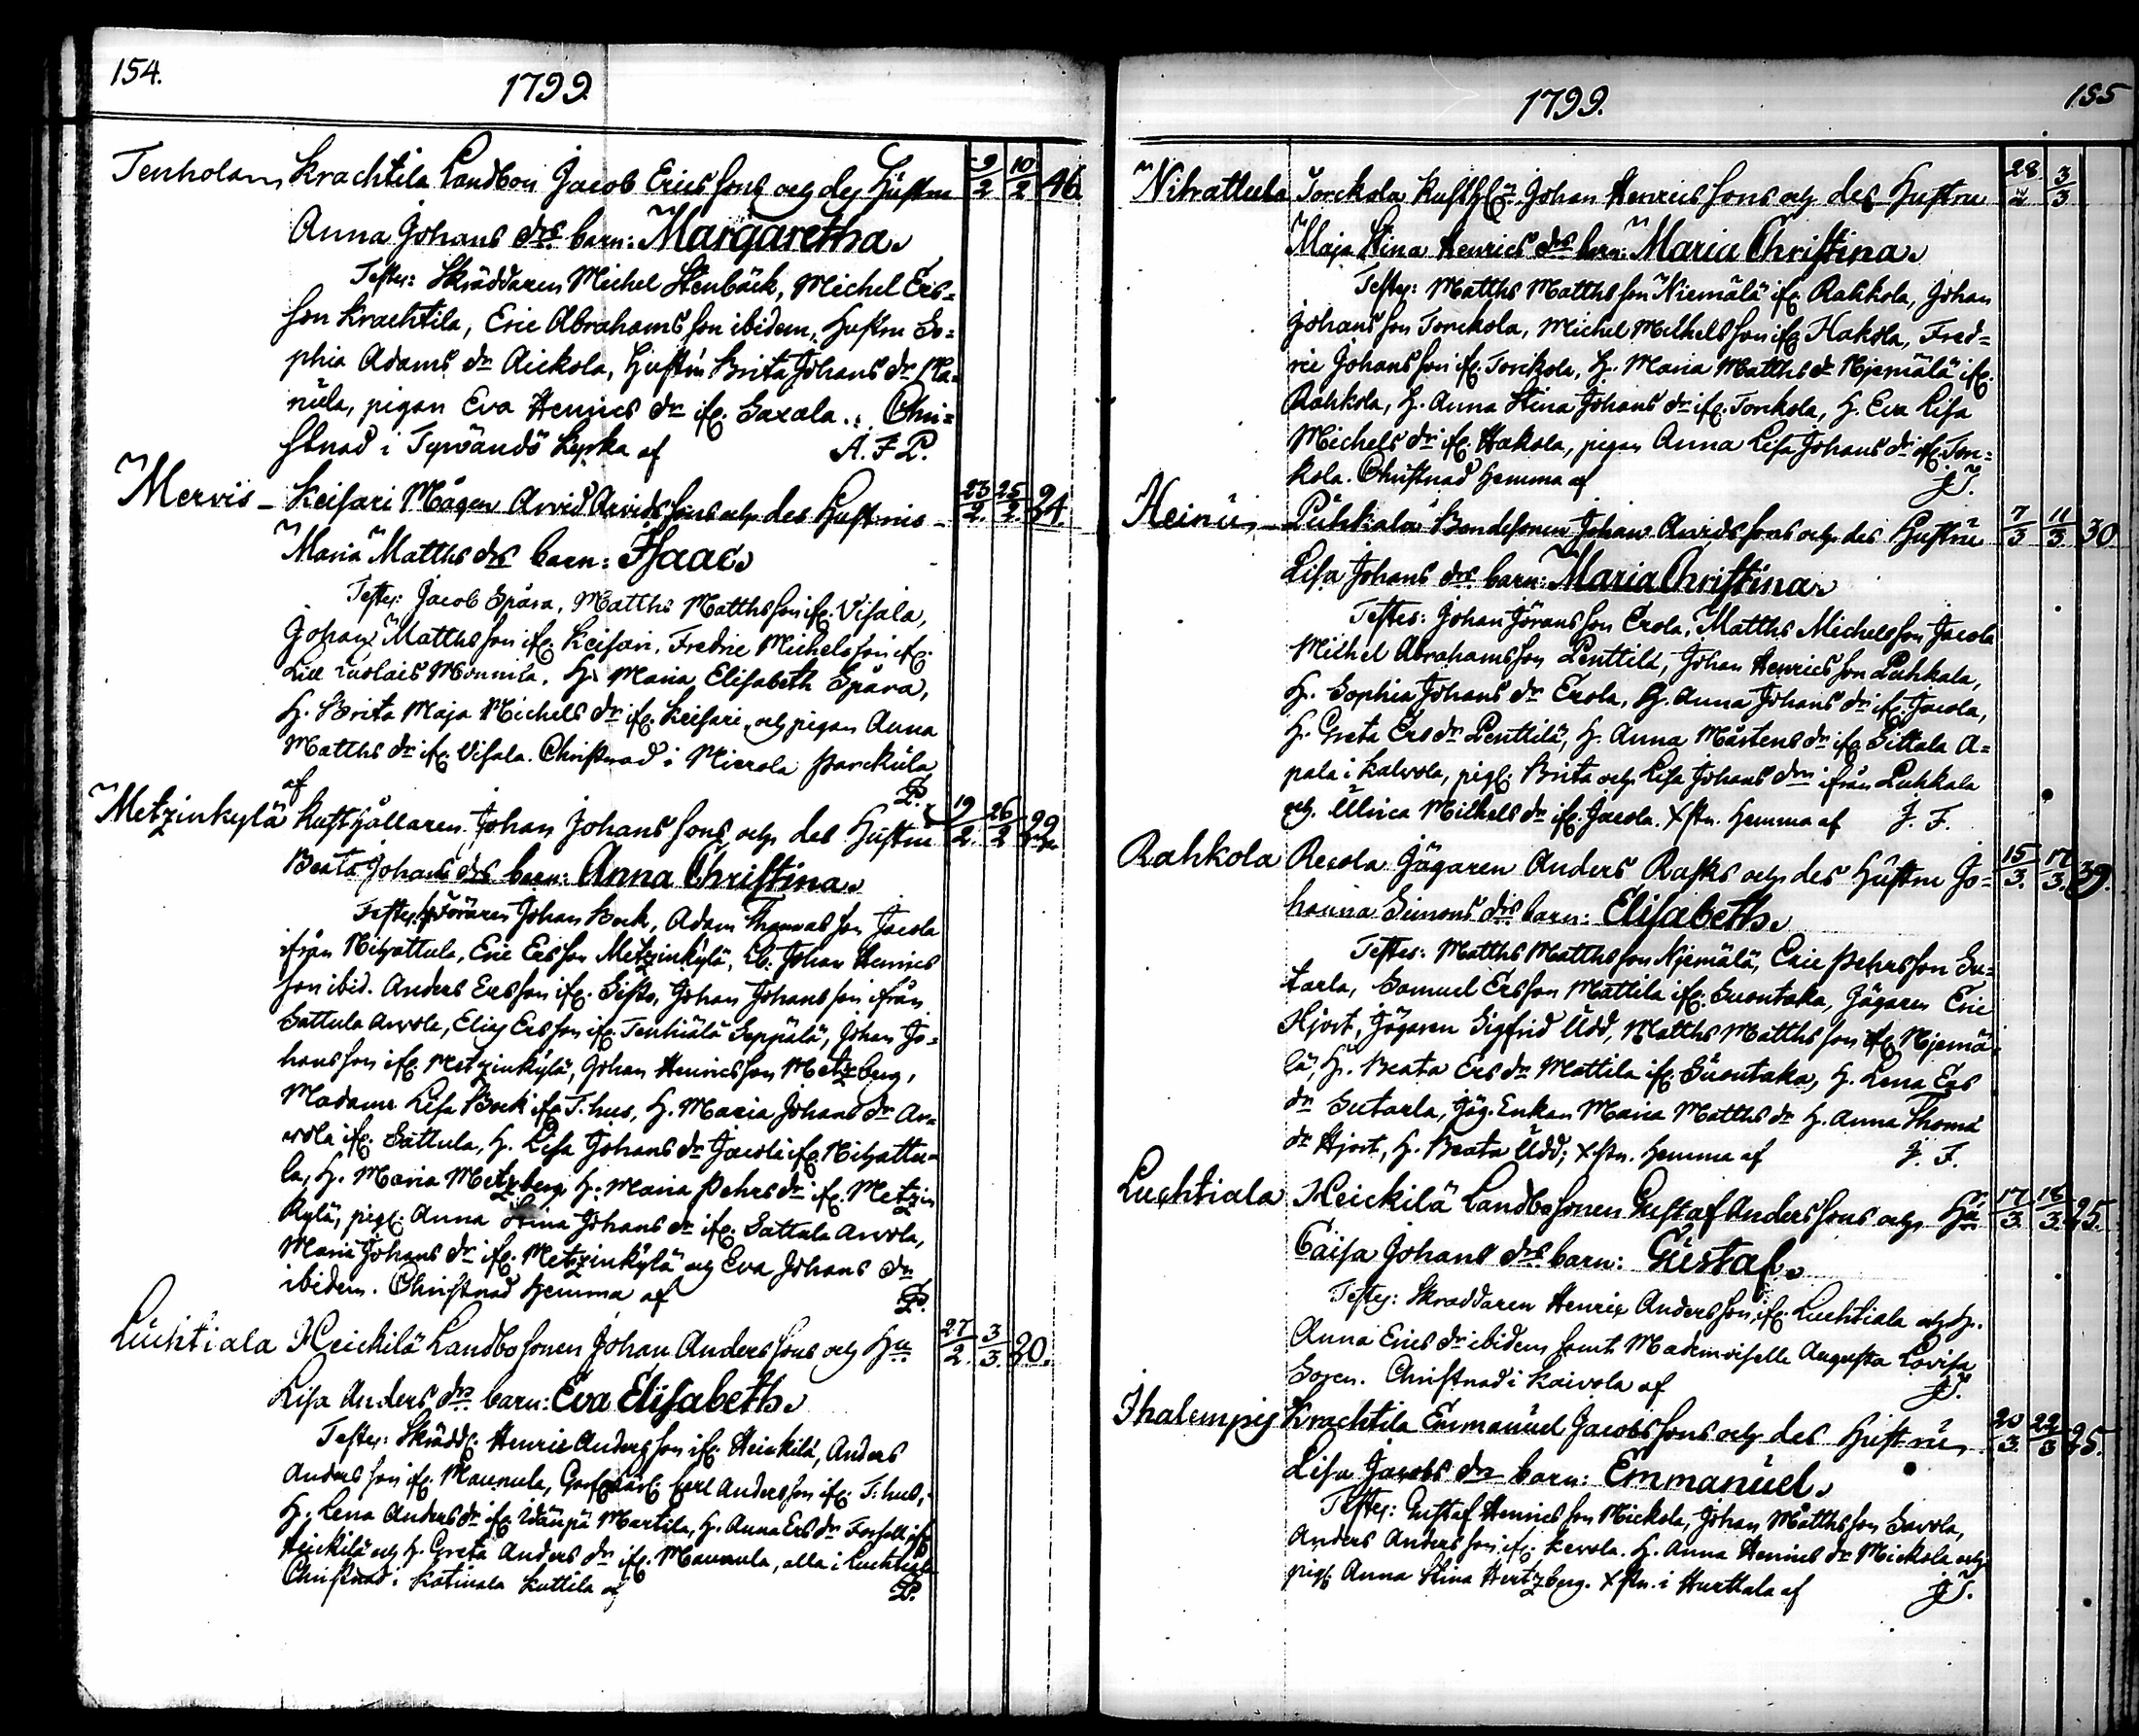 154.
1799.
Tenholan Krachtila Landbon Jacob Ericssons och des Hustru 9/2 10/2 46.
Anna Johans drs barn: Margaretha.
Testes: Skräddaren Michel Stenbäck, Michel Ers=
son Krachtila, Eric Abrahamsson ibidem, Hustru So=
phia Adams dr Aickola, Hustru Brita Johans dr Ma=
nula, pigan Eva Henrics dr ifr. Saxala. Chri=
stnad i Tyrvändö Kyrka af A. F. P.
Mervis - Keisari Mågen Arvid Arvidssons och des Hustrus 23/2. 25/2. 24.
Maria Matths drs barn: Isaac.
Testes: Jacob Spåra, Matths Matthsson ifr. Visala,
Johan Matthsson ifr. Keisari, Fredric Michelsson ifr.
Lill Luolais Monnila, H. Maria Elisabeth Spåra,
H. Brita Maja Michels dr ifr. Keisari, och pigan Anna
Matths dr ifr. Visala. Christnad i Mierola Parckula
af P.
Metzinkylä Rusthållaren Johan Johanssons och des Hustru 19/2. 26/2 29
Beata Johans drs barn: Anna Christina.
Testes: Föraren Johan Bock, Adam Thomasson Jacola
ifrån Nihattula, Eric Ersson Metzinkylä, Lb. Johan Henrics
son ibid. Anders Ersson ifr. Sisto, Johan Johansson ifrån
Sattula Arvola, Elias Ersson ifr. Tenhiälä Seppälä, Johan Jo=
hansson ifr. Metzinkylä, Johan Henricsson Metzberg,
Madame Lisa Bock ifr. T. hus, H. Maria Johans dr Ar=
vola ifr. Sattula, H. Lisa Johans dr Jacola ifr. Nihattu=
la, H. Maria Metzberg, H. Maria Pehrs dr ifr. Metzin
kylä, pig. Anna Stina Johans dr ifr. Sattula Arvola,
Maria Johans dr ifr. Metzinkylä och Eva Johans dr
ibidem. Christnad hemma af P.
Luchtiala Heickilä Landbosonen Johan Anderssons och Hu 27/2. 3/3. 30.
Lisa Anders drs barn: Eva Elisabeth.
Testes: Skrädd. Henric Andersson ifr. Heickilä, Anders
Andersson ifr. Maunula, Carl Andersson ifr. T. hus,
H. Lena Anders dr ifr. Idänpä Martila, H. Anna Ers dr Forsell ifr.
Heickilä och H. Greta Anders dr ifr. Maunula, alla i Luchtiala
Christnad i Katinala Kuttila af P.
1799.
155
Nihattula Torckola Rusth. Johan Henricssons och des Hustru 28/2 3/3
Maja Stina Henrics drs barn: Maria Christina.
Testes: Matths Matthsson Niemälä ifr. Rahkola, Johan
Johansson Torckola, Michel Michelsson ifr. Hakola, Fred=
ric Johansson ifr. Torckola, H. Maria Matths dr Njemälä ifr.
Rahkola, H. Anna Stina Johans dr ifr. Torckola, H. Eva Lisa
Michels dr ifr. Hakola, pigan Anna Lisa Johans dr ifr. Tor=
kola. Christnad hemma af
Heinu - Puhkala Bondesonen Johan Arvidssons och des Hustru 7/3 11/3 30
Lisa Johans drs barn: Maria Christina.
Testes: Johan Jöransson Erola, Matths Michelsson Jacola
Michel Abrahamsson Penttilä, Johan Henricsson Puhkala,
H. Sophia Johans dr Erola, H. Anna Johans dr ifr. Jacola,
H. Greta Ers dr Penttilä, H. Anna Mårtens dr ifr. Sittala A=
pala i Kalvola, pig. Brita och Lisa Johans drr ifrån Puhkala
och Ulrica Michels dr ifr. Jacola. Xstn. hemma af J. F.
Rahkola Recola Jägaren Anders Rasks och des Hustru Jo= 15/3. 17/3. 39.
hanna Simons drs barn: Elisabeth.
Testes: Matths Matthsson Njemälä, Eric Pehrsson Su=
tarla, Samuel Ersson Mattila ifr. Suontaka, Jägaren Eric
Hjort, Jägaren Sigfrid Udd, Matths Matthsson ifr. Njemä=
lä, H. Beata Ers dr Mattila ifr. Suontaka, H. Lena Ers
dr Sutarla, Jäg. Enkan Maria Matths dr H. Anna Thoma
dr Hjort, H. Beata Udd; Xstn. hemma af J. F.
Luchtiala Heickilä Landbosonen Gustaf Anderssons och Hu 17/3. 18/3. 25.
Caisa Johans drs barn: Gustaf.
Testes: Skräddaren Henric Andersson ifr. Luchtiala och H.
Anna Erics dr ibidem samt Mademoiselle Augusta Lovisa
Christnad i Kaivola af
Ihalempis Krachtila Emmanuel Jacobssons och des Hustru 20/3. 22/3 25.
Lisa Jacobs drs barn: Emmanuel.
Testes: Gustaf Henricsson Mickola, Johan Matthsson Savola,
Anders Andersson ifr. Kerola. H. Anna Henrics dr Mickola och
pig. Anna Stina Hertzberg. Xstn. i Hurttala af